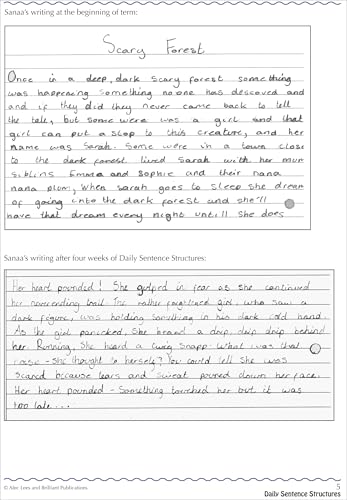 Sanaa's writing at the beginning of term:
Scary Forest
Once in a deep, dark scary forest something
was happening something no one has descoved and
and if they did they never came back to tell
the tale, but some were was a girl and that
girl can put a stop to this creature, and her
name was Sarah. Some were in a town close
to the dark forest lived Sarah with her mum
siblins Emma and Sophie and their nana
nana plom, When sarah goes to sleep she dream
of going into the dark forest and she'll
have that dream every night untill she does
Sanaa's writing after four weeks of Daily Sentence Structures:
Her heart pounded! She gulped in fear as she continued
her neverending trail. The rather frightened girl, who saw a
dark figure, was holding something in his dark cold hand.
As the girl panicked, She heard a drip, drip drip behind
her. Running, She heard a twig snapp. What was that
noise - she thought to herself? You could tell she was
scared because tears and sweat poured down her face.
Her heart pounded - Something touched her but it was
too late....
© Alec Lees and Brilliant Publications
5
Daily Sentence Structures